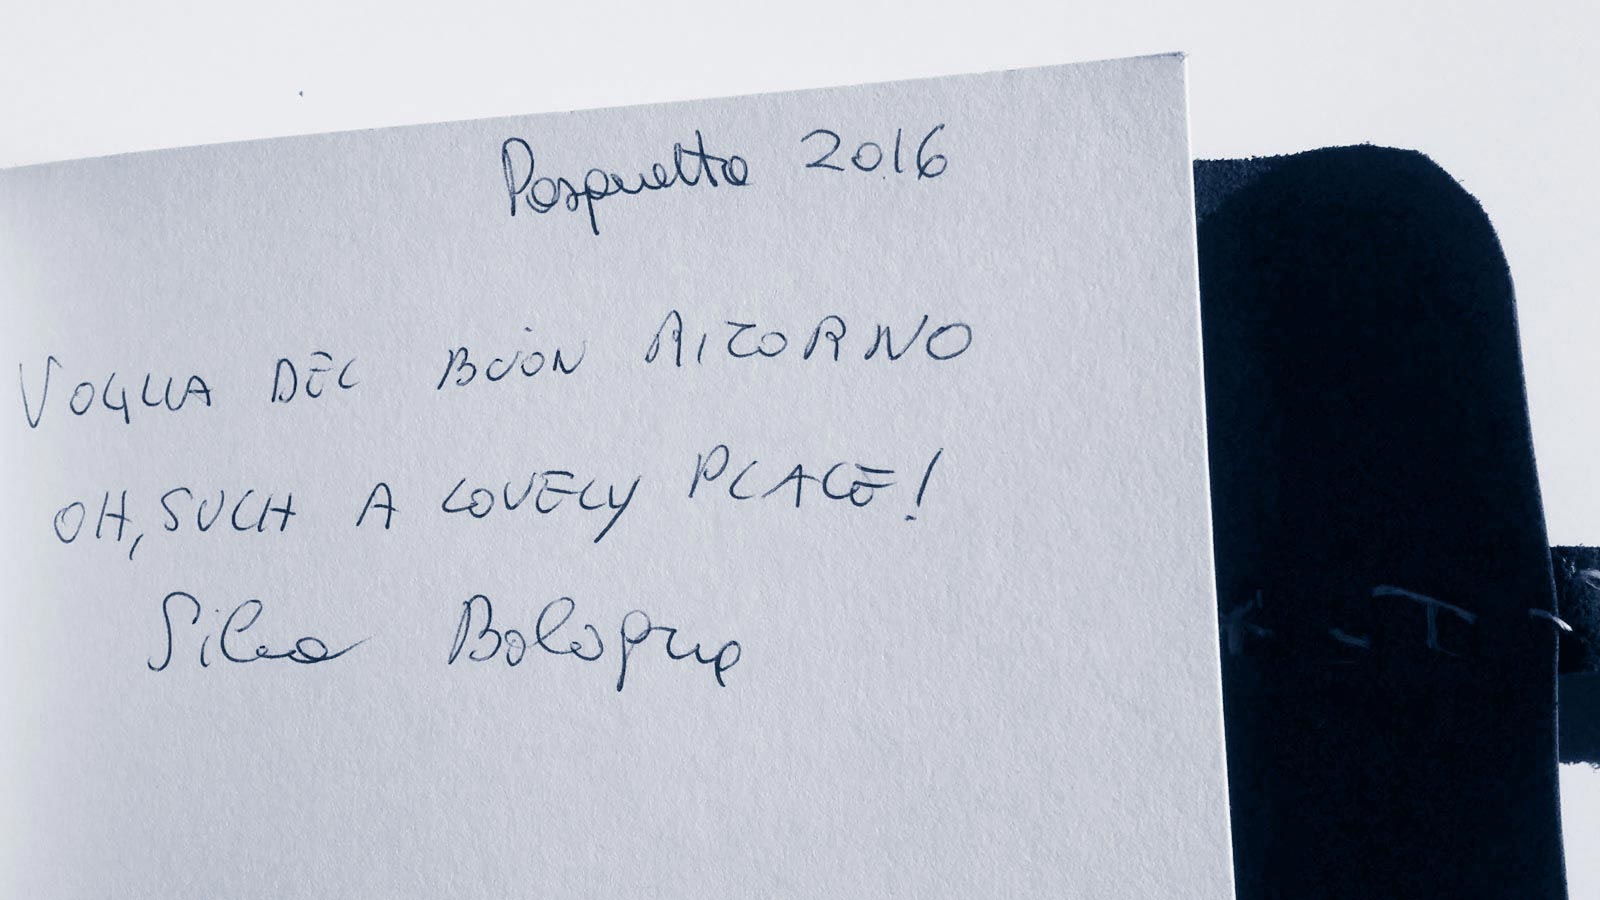 Pasquetta 2016
VOGLIA DEL BUON RITORNO
OH, SUCH A LOVELY PLACE!
Bologna